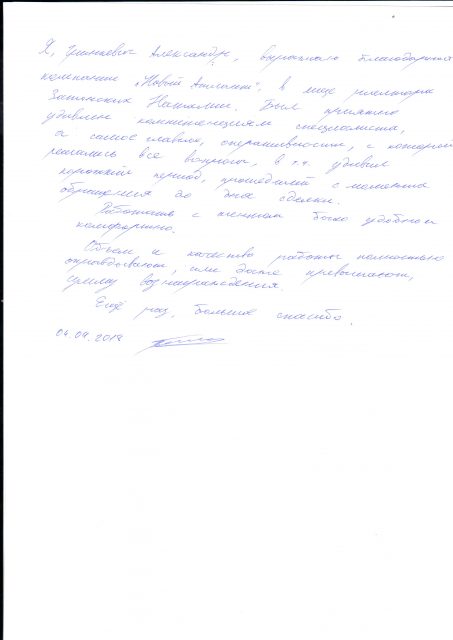 Я, Гринкевич Александр, выражаю благодарность
компании "Новый Атлант", в лице риелтора
Наталии. Был приятно
удивлен компетенциям специалиста,
а самое главное, оперативности, с которой
решались все вопросы, в т.ч. удивил
короткий период, прошедший с момента
обращения до дня сделки.
Работать с было удобно и
комфортно.
Объем и качество работы полностью
оправдывают, или даже превышают,
сумму вознаграждения.
Ещё раз, большое спасибо.
04.09.2018